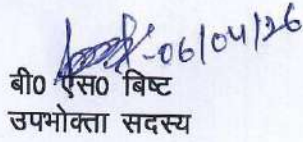 -06/04/26
बी0 एस0 बिष्ट
उपभोक्ता सदस्य